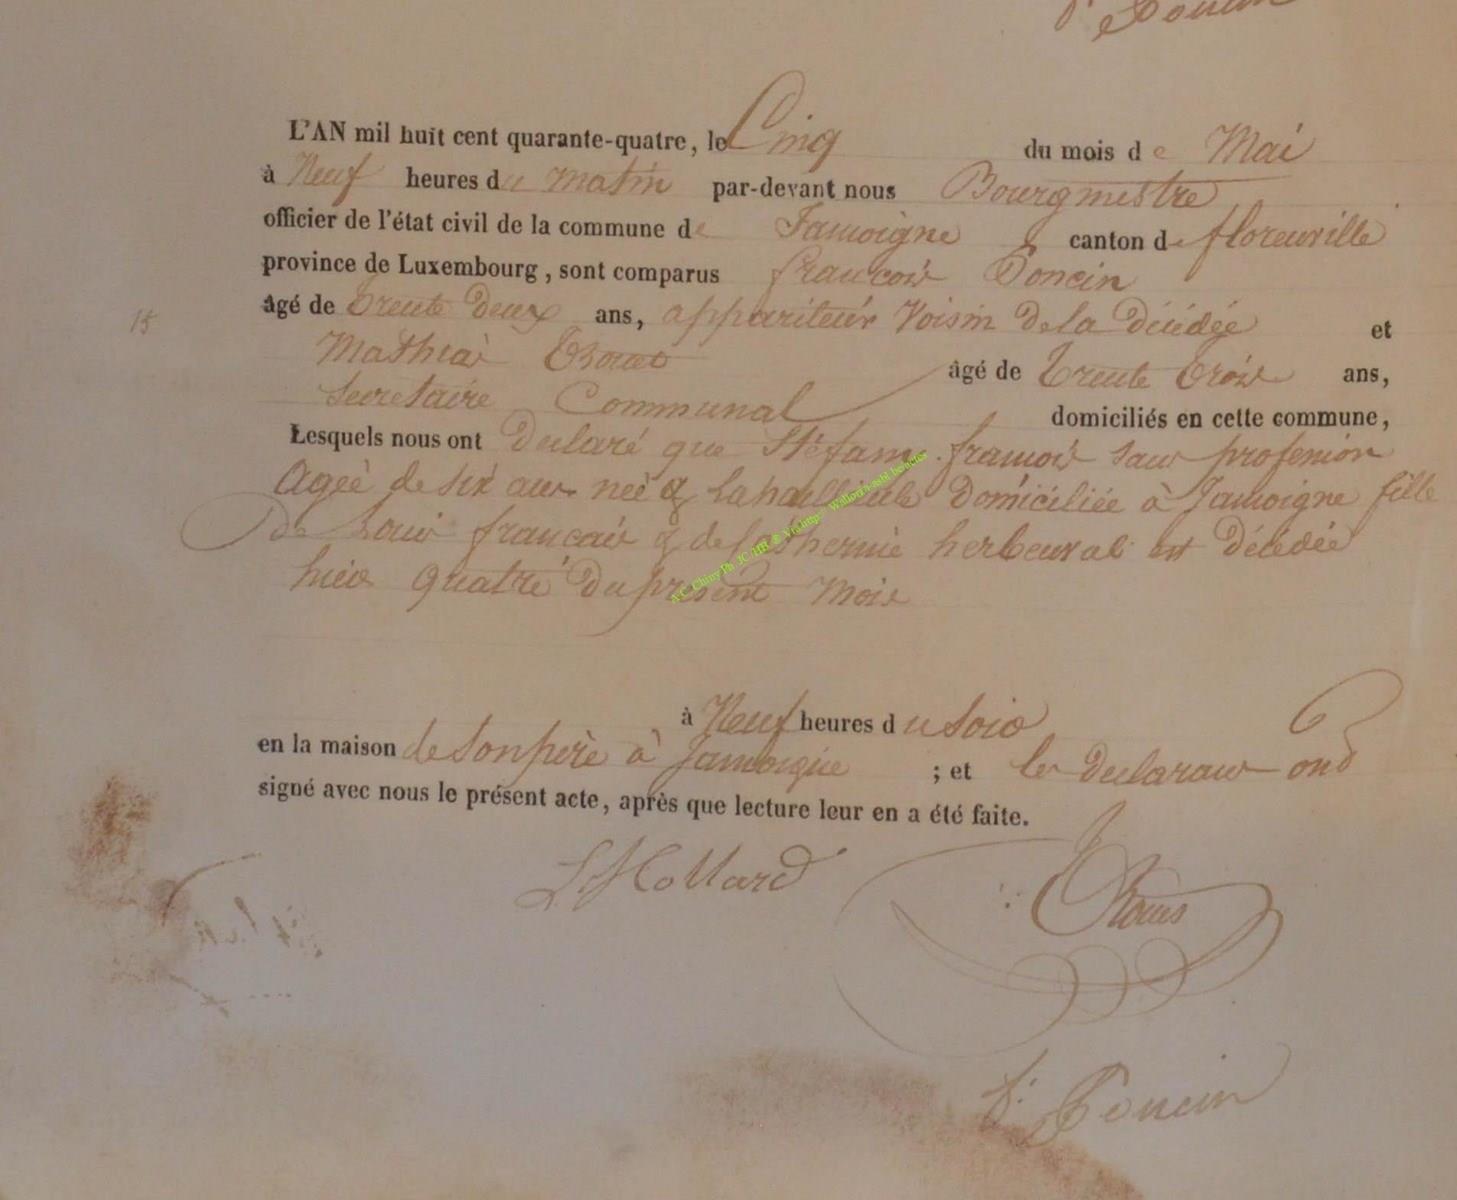 Poncin
L'AN mil huit cent quarante-quatre, le Cinq du mois de Mai
à Neuf heures du matin par-devant nous Bourgmestre
officier de l'état civil de la commune de Jamoigne canton de florenville
province de Luxembourg, sont comparus francois Poncin
âgé de trente Deux ans, appariteur Voisin De la Décédée et
15
Mathias âgé de trente trois ans,
Secretaire Communal domiciliés en cette commune,
Lesquels nous ont Declaré que francois sans profession
Agée de six ans née à domiciliée à Jamoigne fille
De Louis francais & de herbeuval est Décédée
hier quatre Du présent Mois
à Neuf heures du soir
en la maison de son père à Jamoigne ; et les Declarans ont
signé avec nous le présent acte, après que lecture leur en a été faite.
Hollard
Poncin